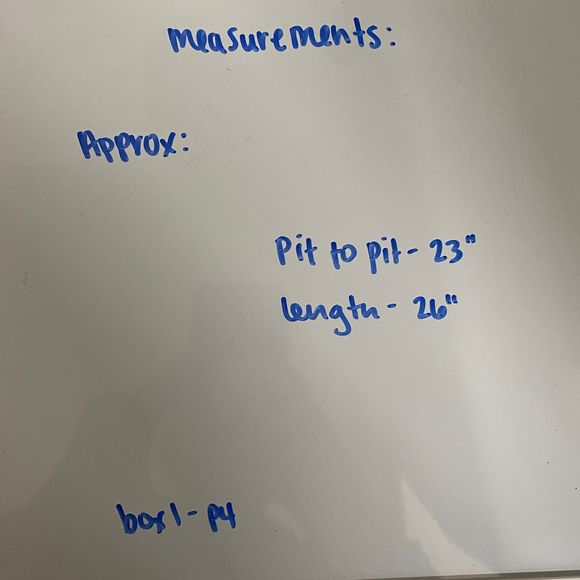 measurements:
Approx:
Pit to pit - 23"
length - 26"
box 1 - p4